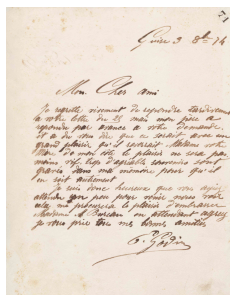 Guise 3 8bre 74
Mon Cher ami
Je regrette vivement de repondre tardivement
à votre lettre du 25 mais mon père a
repondu par avance a votre demande
et a du vous dire que ce serait avec un
grand plaisir qu'il recevrait Madame votre
de mon côté le plaisir ne sera pas
moins vif trop d'agreables souvenirs sont
gravés dans ma memoire pour qu'il
en soit autrement
Je suis donc heureux que vous ayez
attendu que peu pour venir nous voir
cela me procurera le plaisir d'embrasser
en attendant agreez
je vous prie tous mes bonnes amitiés
E. Godin